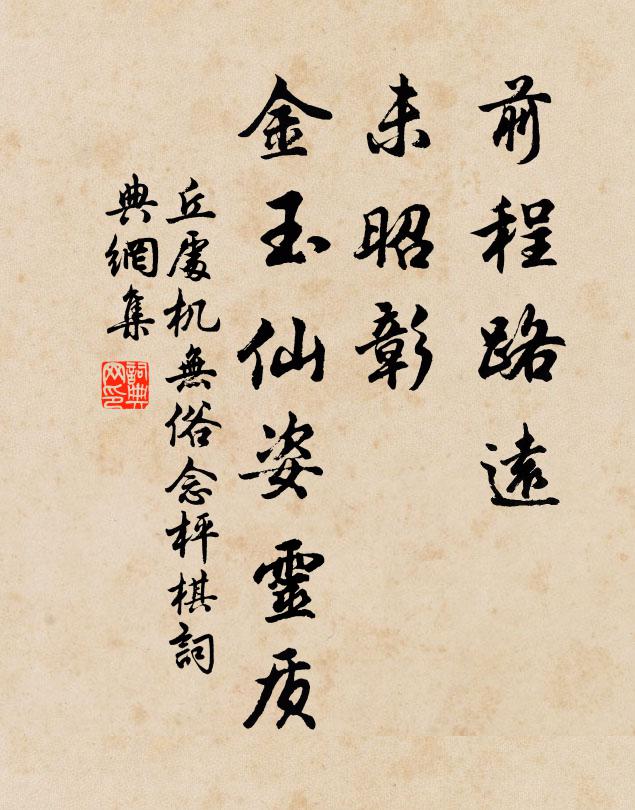 前程路遠
未昭彰
金玉仙姿靈质
丘處机無俗念枰棋詞
典網集
詞典
网印